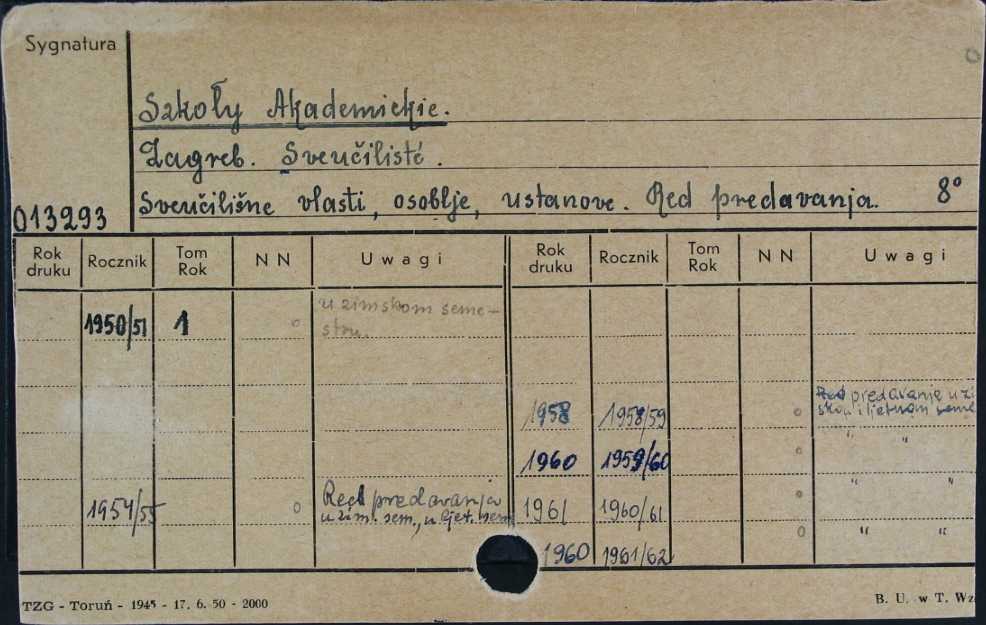 Sygnatura
Szkoły Akademickie.
Zagreb. Sveučilište.
Sveučilišne vlasti, osoblje, ustanove. Red predavanja. 8°
013293
Rok druku Rocznik Tom Rok N N Uwagi Rok druku Rocznik Tom Rok N N Uwagi
1950/51 1 o u zimskom seme-
stru.
1958 1958/59 o Red predavanja u zi
skom i ljetnom seme
1960 1959/60 o " "
1954/55 o Red predavanja
u zim. sem., u ljet. sem
1961 1960/61 o " "
1960 1961/62 o " "
TZG - Toruń - 1945 - 17. 6. 50 - 2000
B. U. w T. Wz